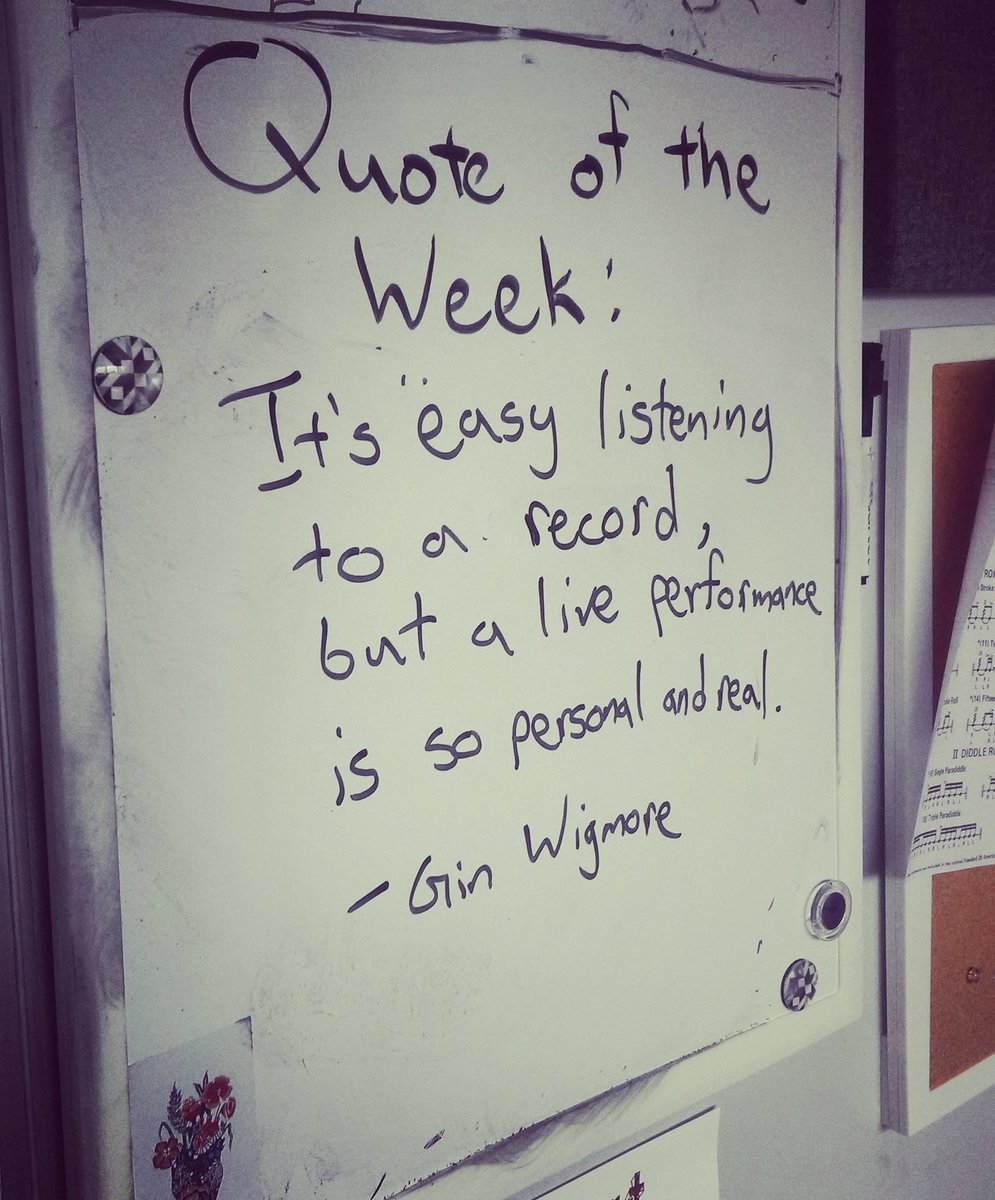 Quote of the
Week:
It's easy listening
to a record,
but a live performance
is so personal and real.
- Gin Wigmore
II DIDDLE RU
Single Paradiddle
Triple Paradiddle